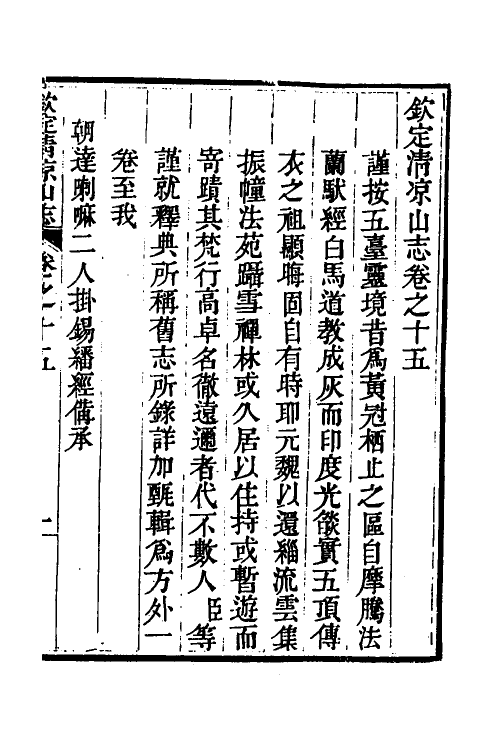 欽定清凉山志卷之十五
謹按五臺靈境昔爲黃冠栖止之區自摩騰法
蘭馱經白馬道教成灰而印度光燄實五頂傳
衣之祖顯晦固自有時耶元魏以還緇流雲集
振幢法苑躡雪禪林或久居以住持或暫遊而
寄蹟其梵行高卓名徹遠邇者代不數人臣等
謹就釋典所稱舊志所錄詳加甄輯爲方外一
卷至我
朝達喇嘛二人掛錫繙經備承
欽定清凉山志 卷之十五 一